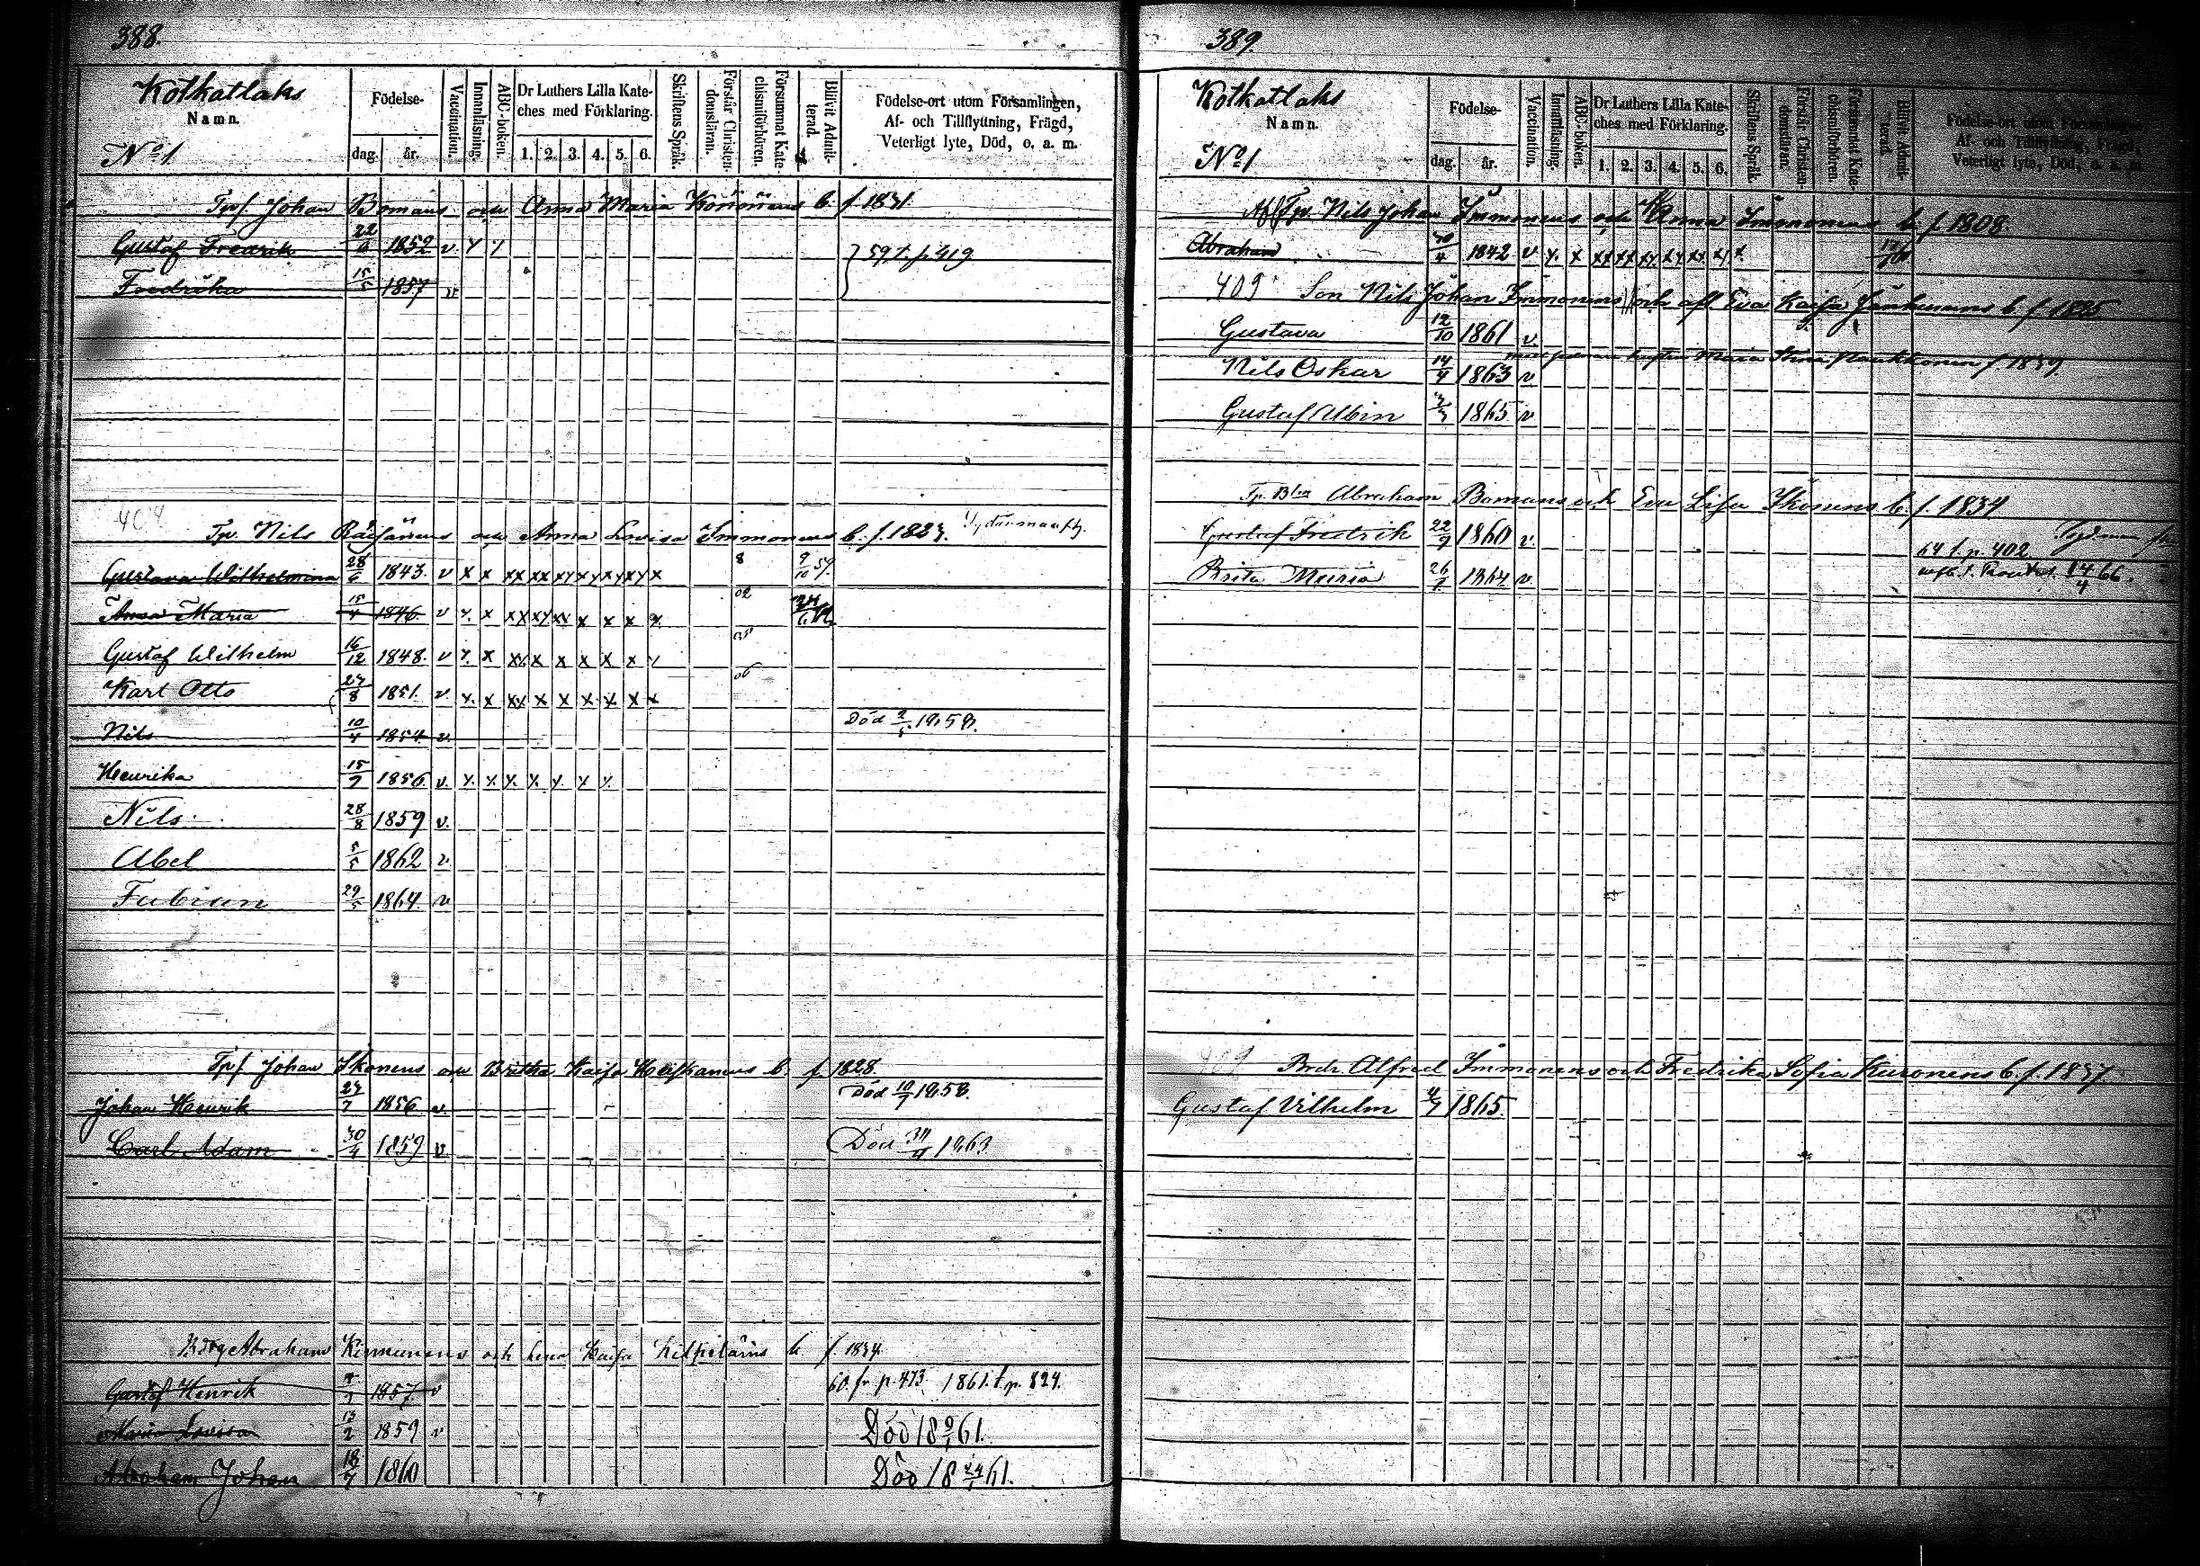 388.
Kotkatlaks
Namn.
No 1.
Födelse-
dag. år.
Vaccination.
Innanläsning.
ABC-boken.
Dr Luthers Lilla Kate-
ches med Förklaring.
1. 2. 3. 4. 5. 6.
Skriftens Språk.
Förstår Christen-
domsläran.
Försummat Kate-
chismiförhören.
Blifvit Admit-
terad.
Födelse-ort utom Församlingen,
Af- och Tillflyttning, Frägd,
Veterligt lyte, Död, o. a. m.
Tpf. Johan Bomans och Anna Maria Könönens b. f. 1831.
Gustaf Fredrik 22/9 1852 v. x x
59 t. p. 419
Fredrika 15/5 1857 v
404
Tpr. Nils Räisänens och Anna Lovisa Immonens b. f. 1823.
Gustava Wilhelmina 28/6 1843. v x x xx xx xx xx xx x 8 9/10 59.
Anna Maria 15/4 1846. v x. x xx xx xx x x x x. 02
Gustaf Wilhelm 16/12 1848. v x. x xx x x x x x x
Karl Otto 27/8 1851. v. x. x xx x x x x x x 06
Nils 10/4 1854 v. Död 2/5 1858.
Henrika 15/7 1856. v. x. x. x. x. x. x x.
Nils 28/8 1859 v.
Abel 5/5 1862 v
Fabian 29/5 1864 v
Tpf. Johan Ikonens och Britha Kaisa Heiskanens b. f. 1828.
Johan Henrik 27/7 1856 v. Död 10/7 1858.
Carl Adam 30/4 1859 v. Död 30/4 1863
Abraham Kinnunens och Lena Kaisa Kilpeläins b f. 1834.
Gustaf Henrik 1857 v 60. fr p. 473 1861. t. p. 824.
Maria Lovisa 13/2 1859 v Död 18 61.
Abraham Johan 18/7 1860 Död 18 61.
389.
Kotkatlaks
Namn.
No 1
Födelse-
dag. år.
Vaccination.
Innanläsning.
ABC-boken.
Dr Luthers Lilla Kate-
ches med Förklaring.
1. 2. 3. 4. 5. 6.
Skriftens Språk.
Förstår Christen-
domsläran.
Försummat Kate-
chismiförhören.
Blifvit Admit-
terad.
Födelse-ort utom Församlingen,
Af- och Tillflyttning, Frägd,
Veterligt lyte, Död, o. a. m.
Afl. Tpr. Nils Johan Immonens och Anna Immonens b. f. 1808.
Abraham 1842 v x. x xx xx xx xx xx x x
409 Son Nils Johan Immonens och afl. Eva Kaisa b. f. 1835
Gustava 12/10 1861 v.
Maria Stina f. 1839
Nils Oskar 14/4 1863 v
Gustaf Albin 1865 v
Tp. Abraham Bomans och Eva Lisa Ikonens b. f. 1834
Gustaf Fredrik 22/9 1860 v. 64 t. p. 402.
Brita Maria 26/7 1864 v. 14/4 66.
409
Brdr Alfred Immonens och Fredrika Sofia Kuronens b. f. 1837.
Gustaf Vilhelm 1865.